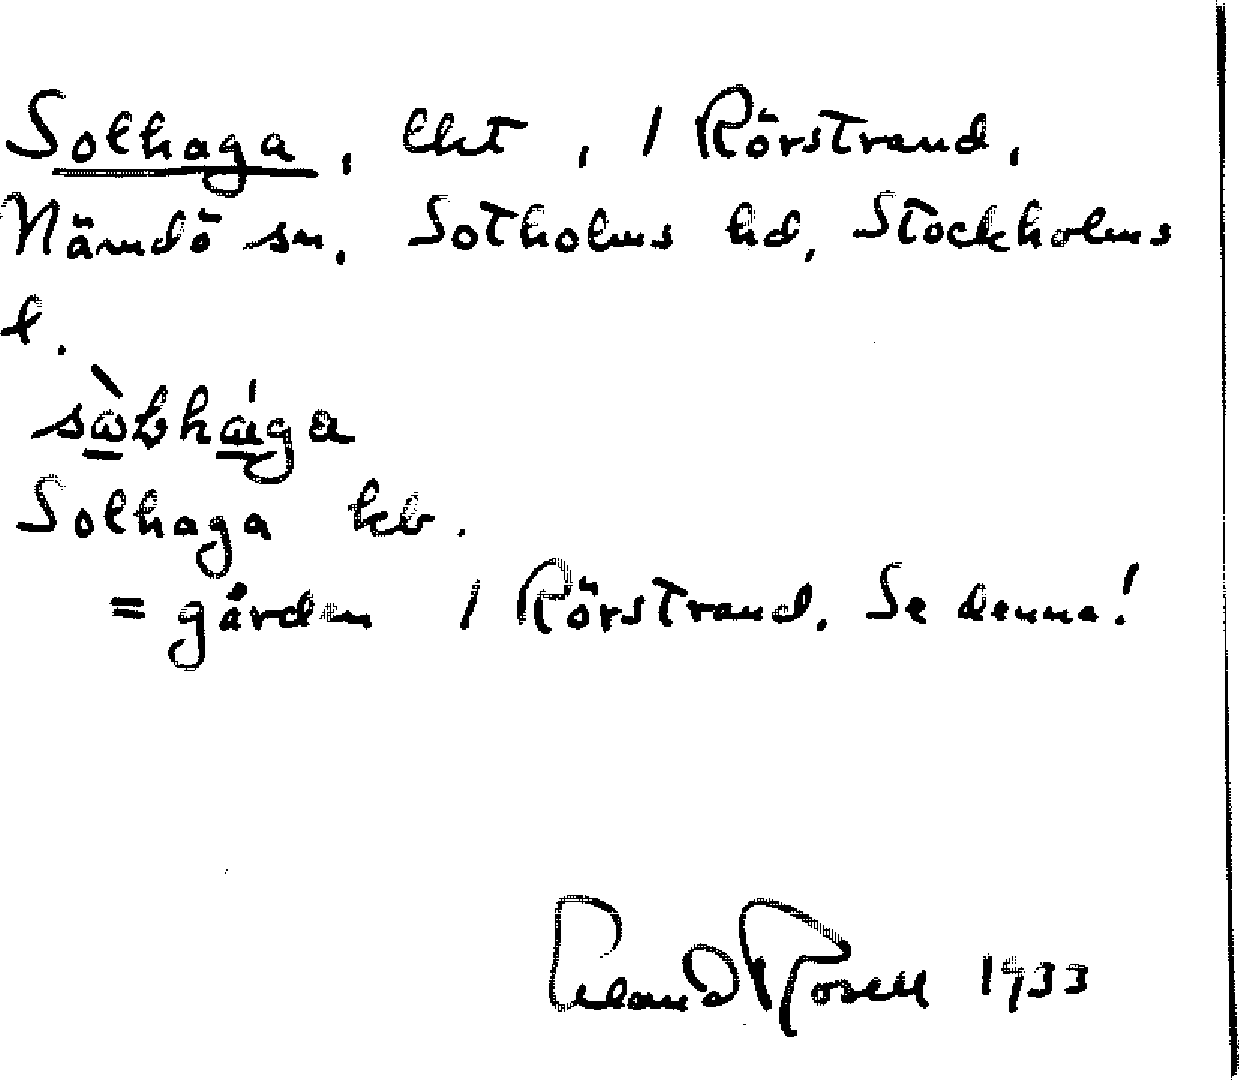 Solhaga, lht, 1 Rörstrand,
Nämdö sn. Sotholms hd, Stockholms
l.
Solhaga kb.
= gården 1 Rörstrand. Se denna!
Erland Rosell 1933